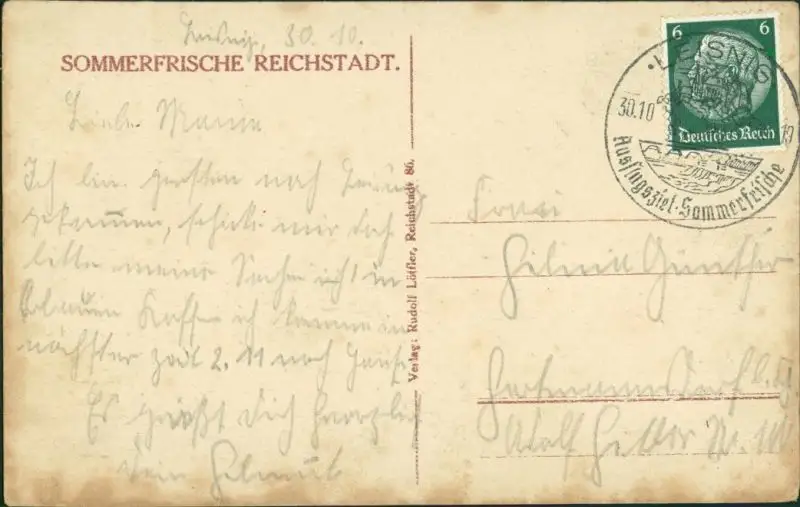 Leisnig, 30. 10.
SOMMERFRISCHE REICHSTADT.
Liebe Mama
Ich bin gestern nach Leisnig
gekommen, schicke mir doch
bitte meine Sachen nicht in
blauen Koffer ich komme in
nächster Zeit 2. 11 nach Hause
Es grüßt Dich herzlich
Dein Helmut
Verlag: Rudolf Löffler, Reichstadt 86.
6 6
Deutsches Reich
LEISNIG
30.10
19
Ausflugsziel·Sommerfrische
Frau
Günther
Hartmannsdorf
Adolf Hitler